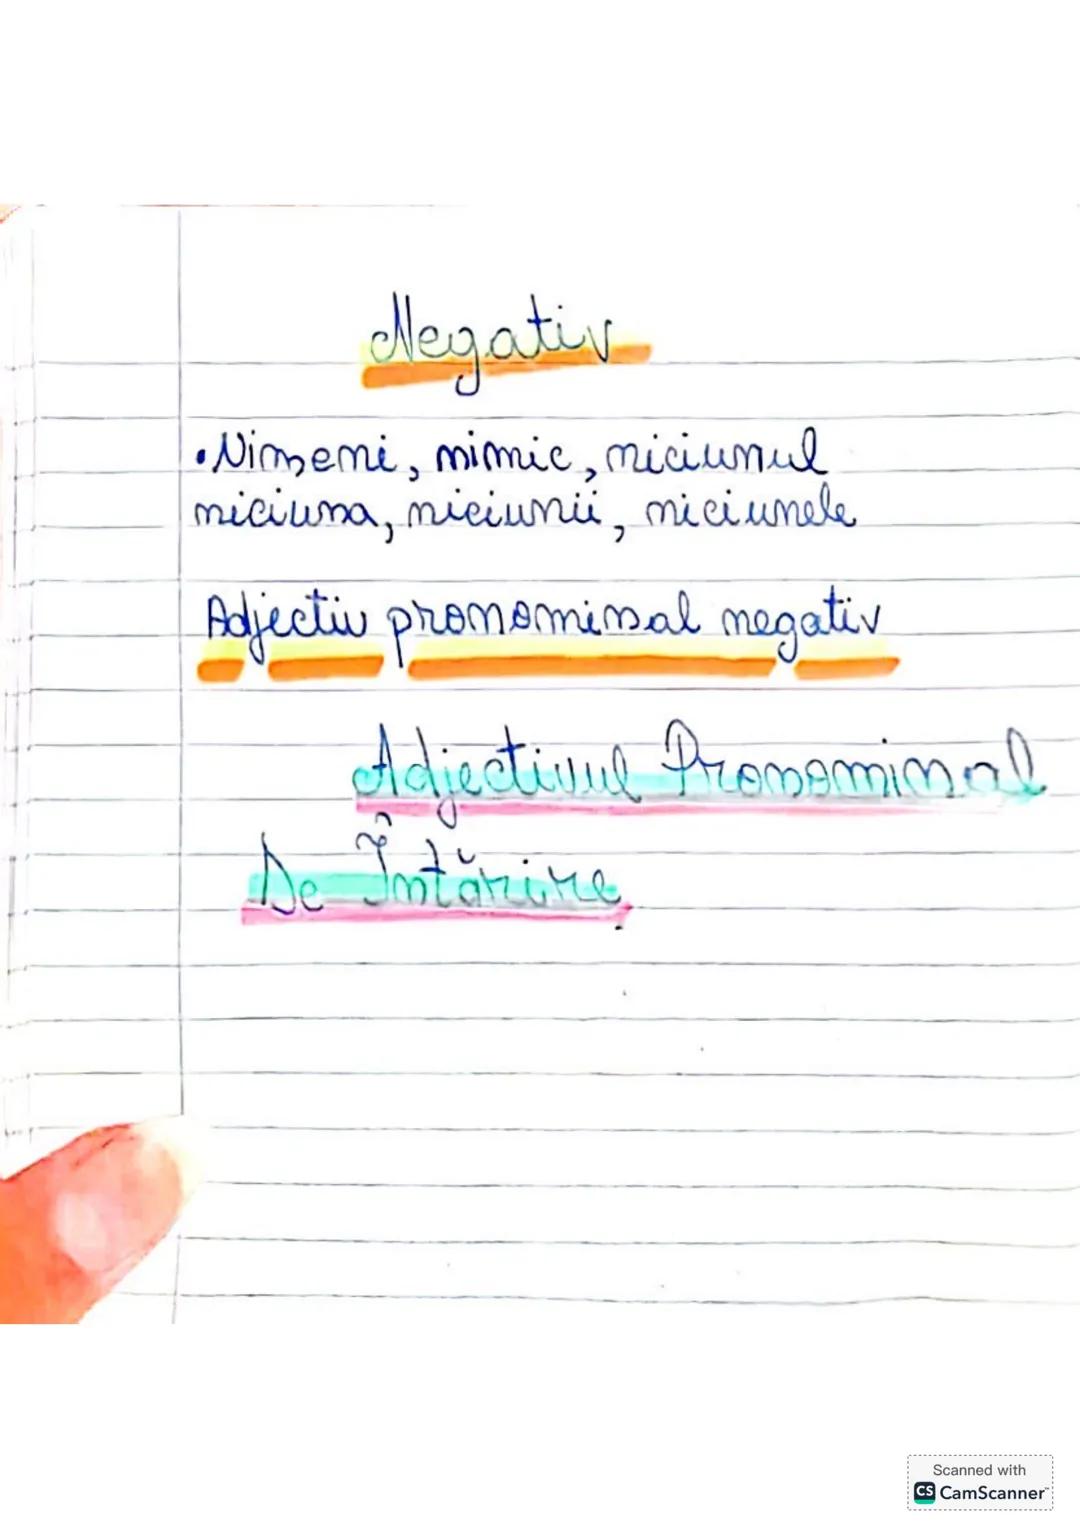 Negativ
•Nimeni, nimic, niciunul
niciuna, niciunii, niciunele
Adjectiv pronominal negativ
Adjectivul Pronominal
De Întărire
Scanned with
CS CamScanner